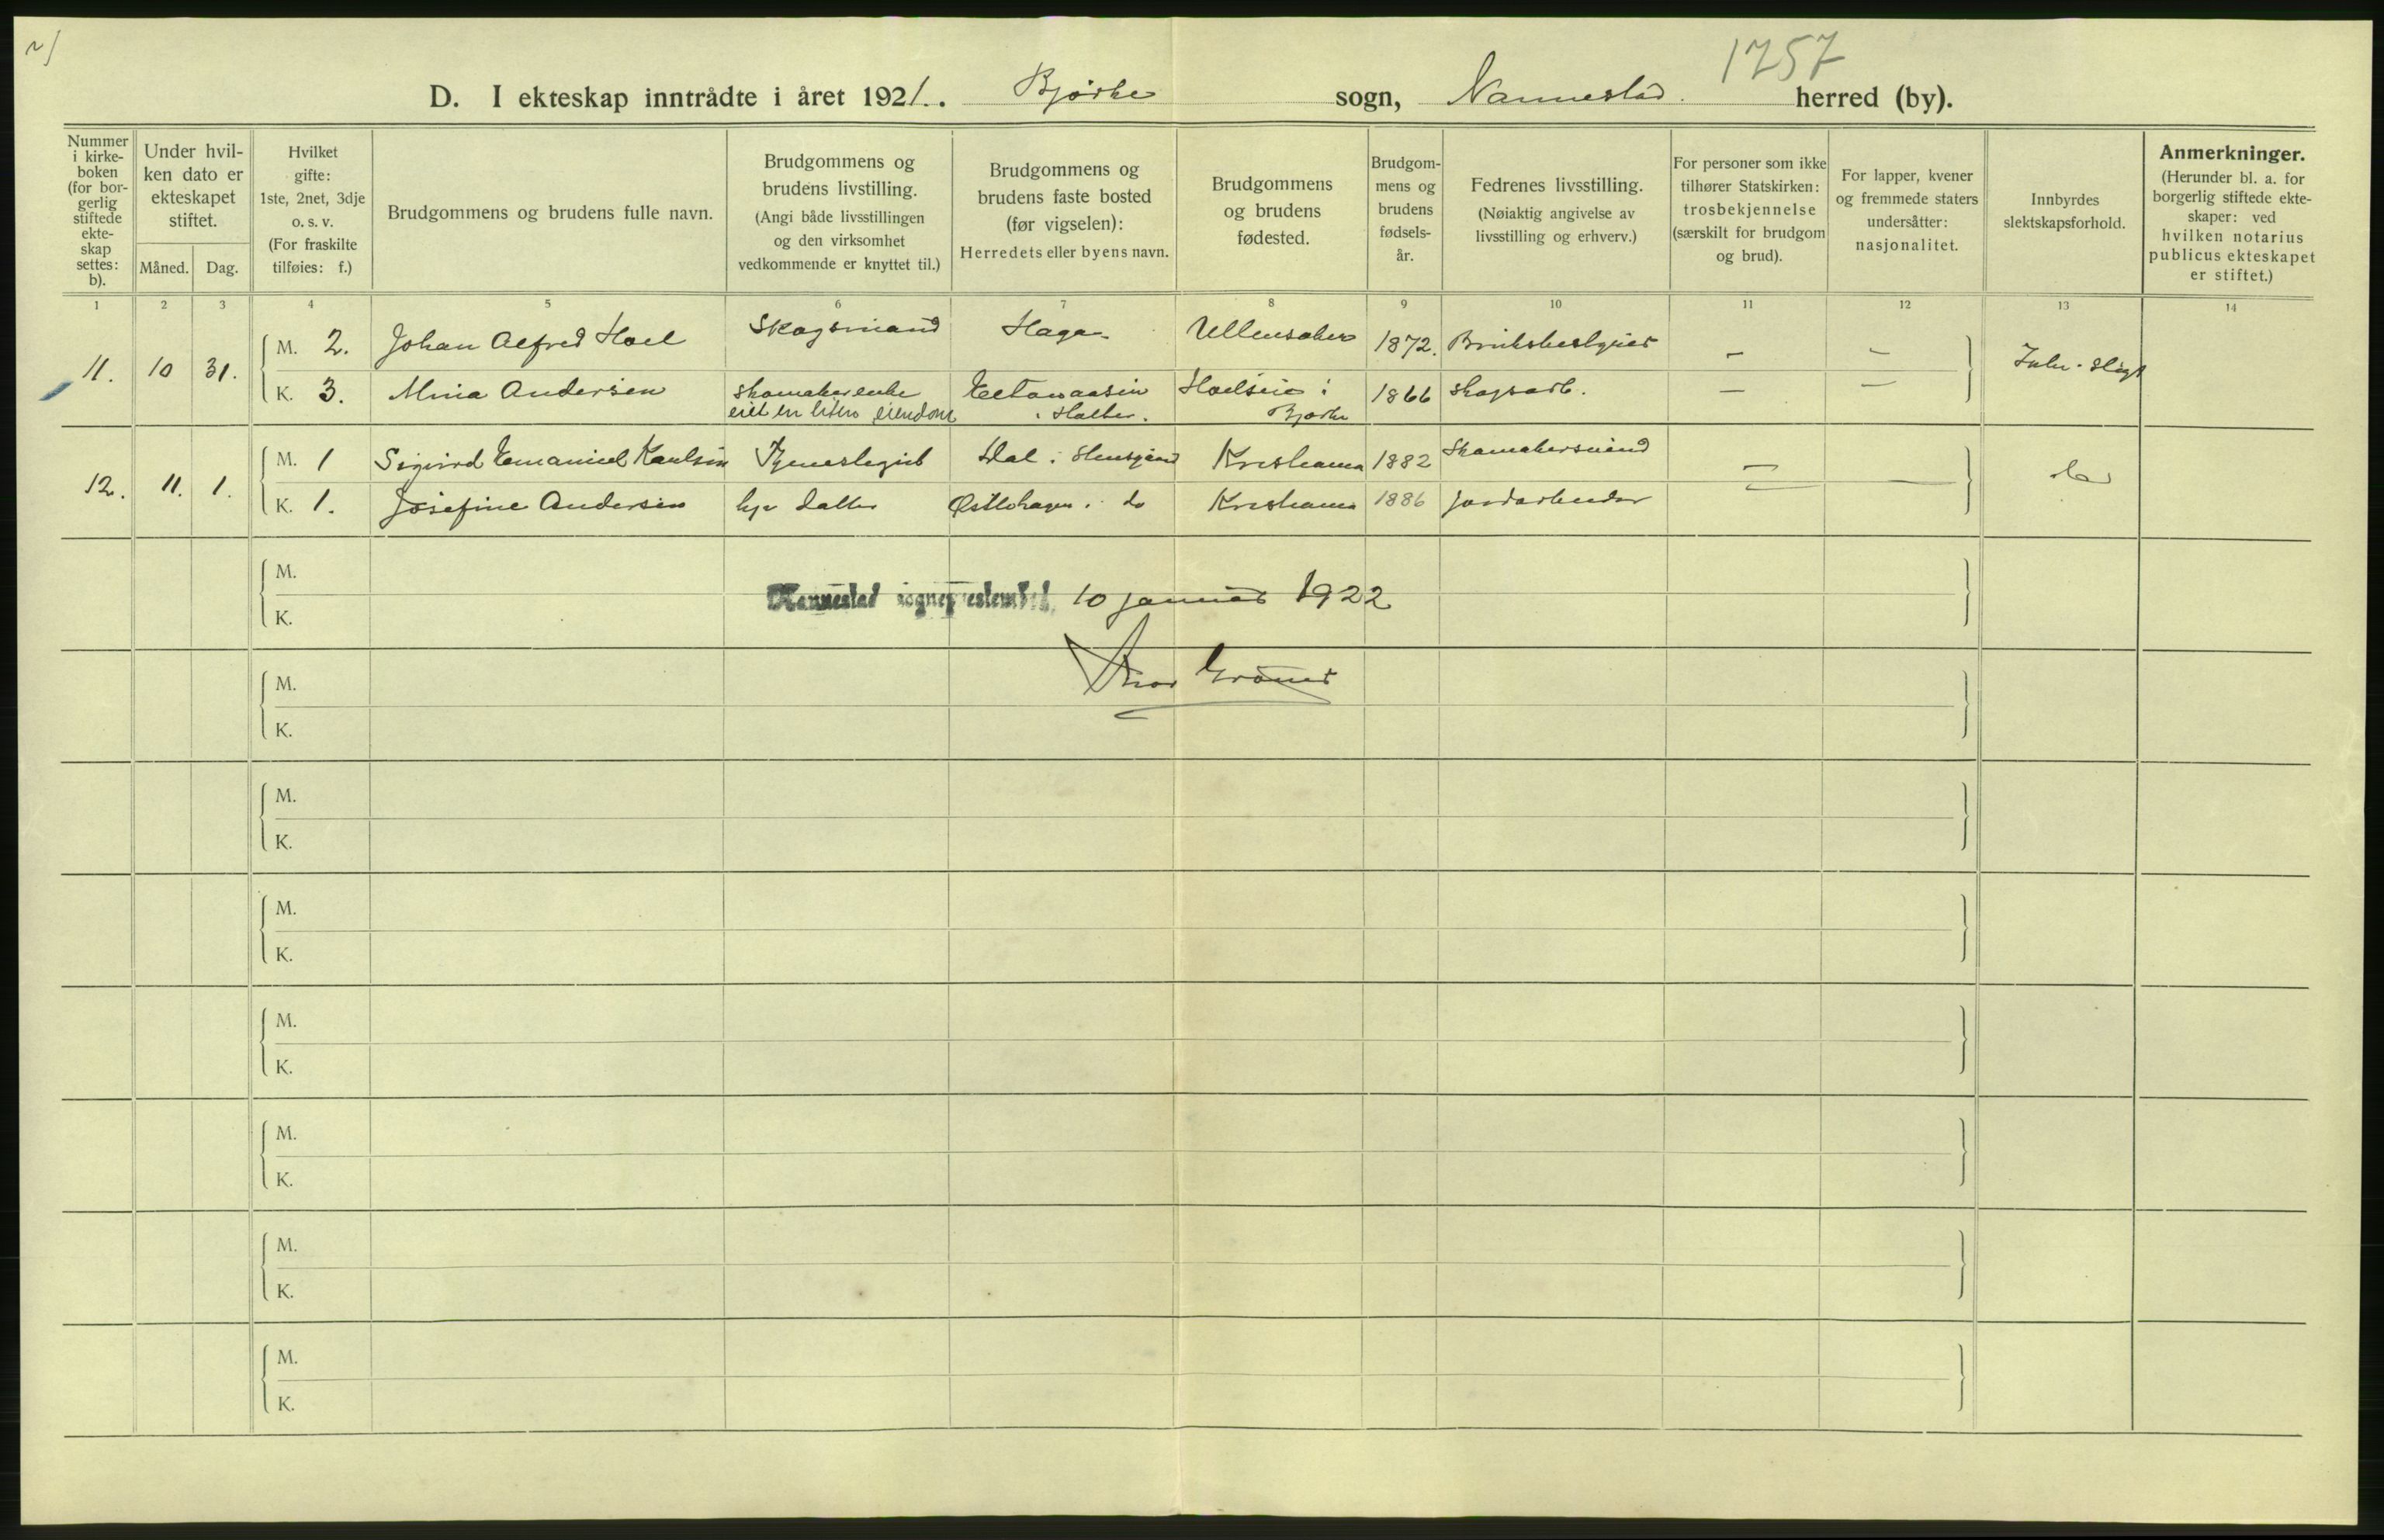 2)
1757
D. I ekteskap inntrådte i året 1921. Bjørke sogn, Nannestad herred (by).
Nummer i kirke-boken (for bor-gerlig stiftede ekte-skap settes: b).
Under hvil-ken dato er ekteskapet stiftet.
Måned. Dag.
Hvilket gifte: 1ste, 2net, 3dje o. s. v. (For fraskilte tilføies: f.)
Brudgommens og brudens fulle navn.
Brudgommens og brudens livstilling. (Angi både livsstillingen og den virksomhet vedkommende er knyttet til.)
Brudgommens og brudens faste bosted (før vigselen): Herredets eller byens navn.
Brudgommens og brudens fødested.
Brudgom-mens og brudens fødsels-år.
Fedrenes livsstilling. (Nøiaktig angivelse av livsstilling og erhverv.)
For personer som ikke tilhører Statskirken: trosbekjennelse (særskilt for brudgom og brud).
For lapper, kvener og fremmede staters undersåtter: nasjonalitet.
Innbyrdes slektskapsforhold.
Anmerkninger. (Herunder bl. a. for borgerlig stiftede ekte-skaper: ved hvilken notarius publicus ekteskapet er stiftet.)
1 2 3 4 5 6 7 8 9 10 11 12 13 14
11. 10 31. M. 2. Johan Alfred Hoel Skogsmand Haga Ullensaker 1872. Bruksbestyrer – –
K. 3. Mina Andersen skomakerenke i Holter. Hoelseie i Bjørke 1866 skogsarb. – –
eiet en liten eiendom
12. 11. 1. M. 1 Sigurd Emanuel Karlsen Dal i Kristiania 1882 Skomakersvend – –
K. 1. Josefine Andersen hjv datter Østlohagen i do Kristiania 1886 jordarbeider –
M.
K.
Nannestad sogneprestembed, 10 januar 1922
M.
K.
M.
K.
M.
K.
M.
K.
M.
K.
M.
K.
M.
K.